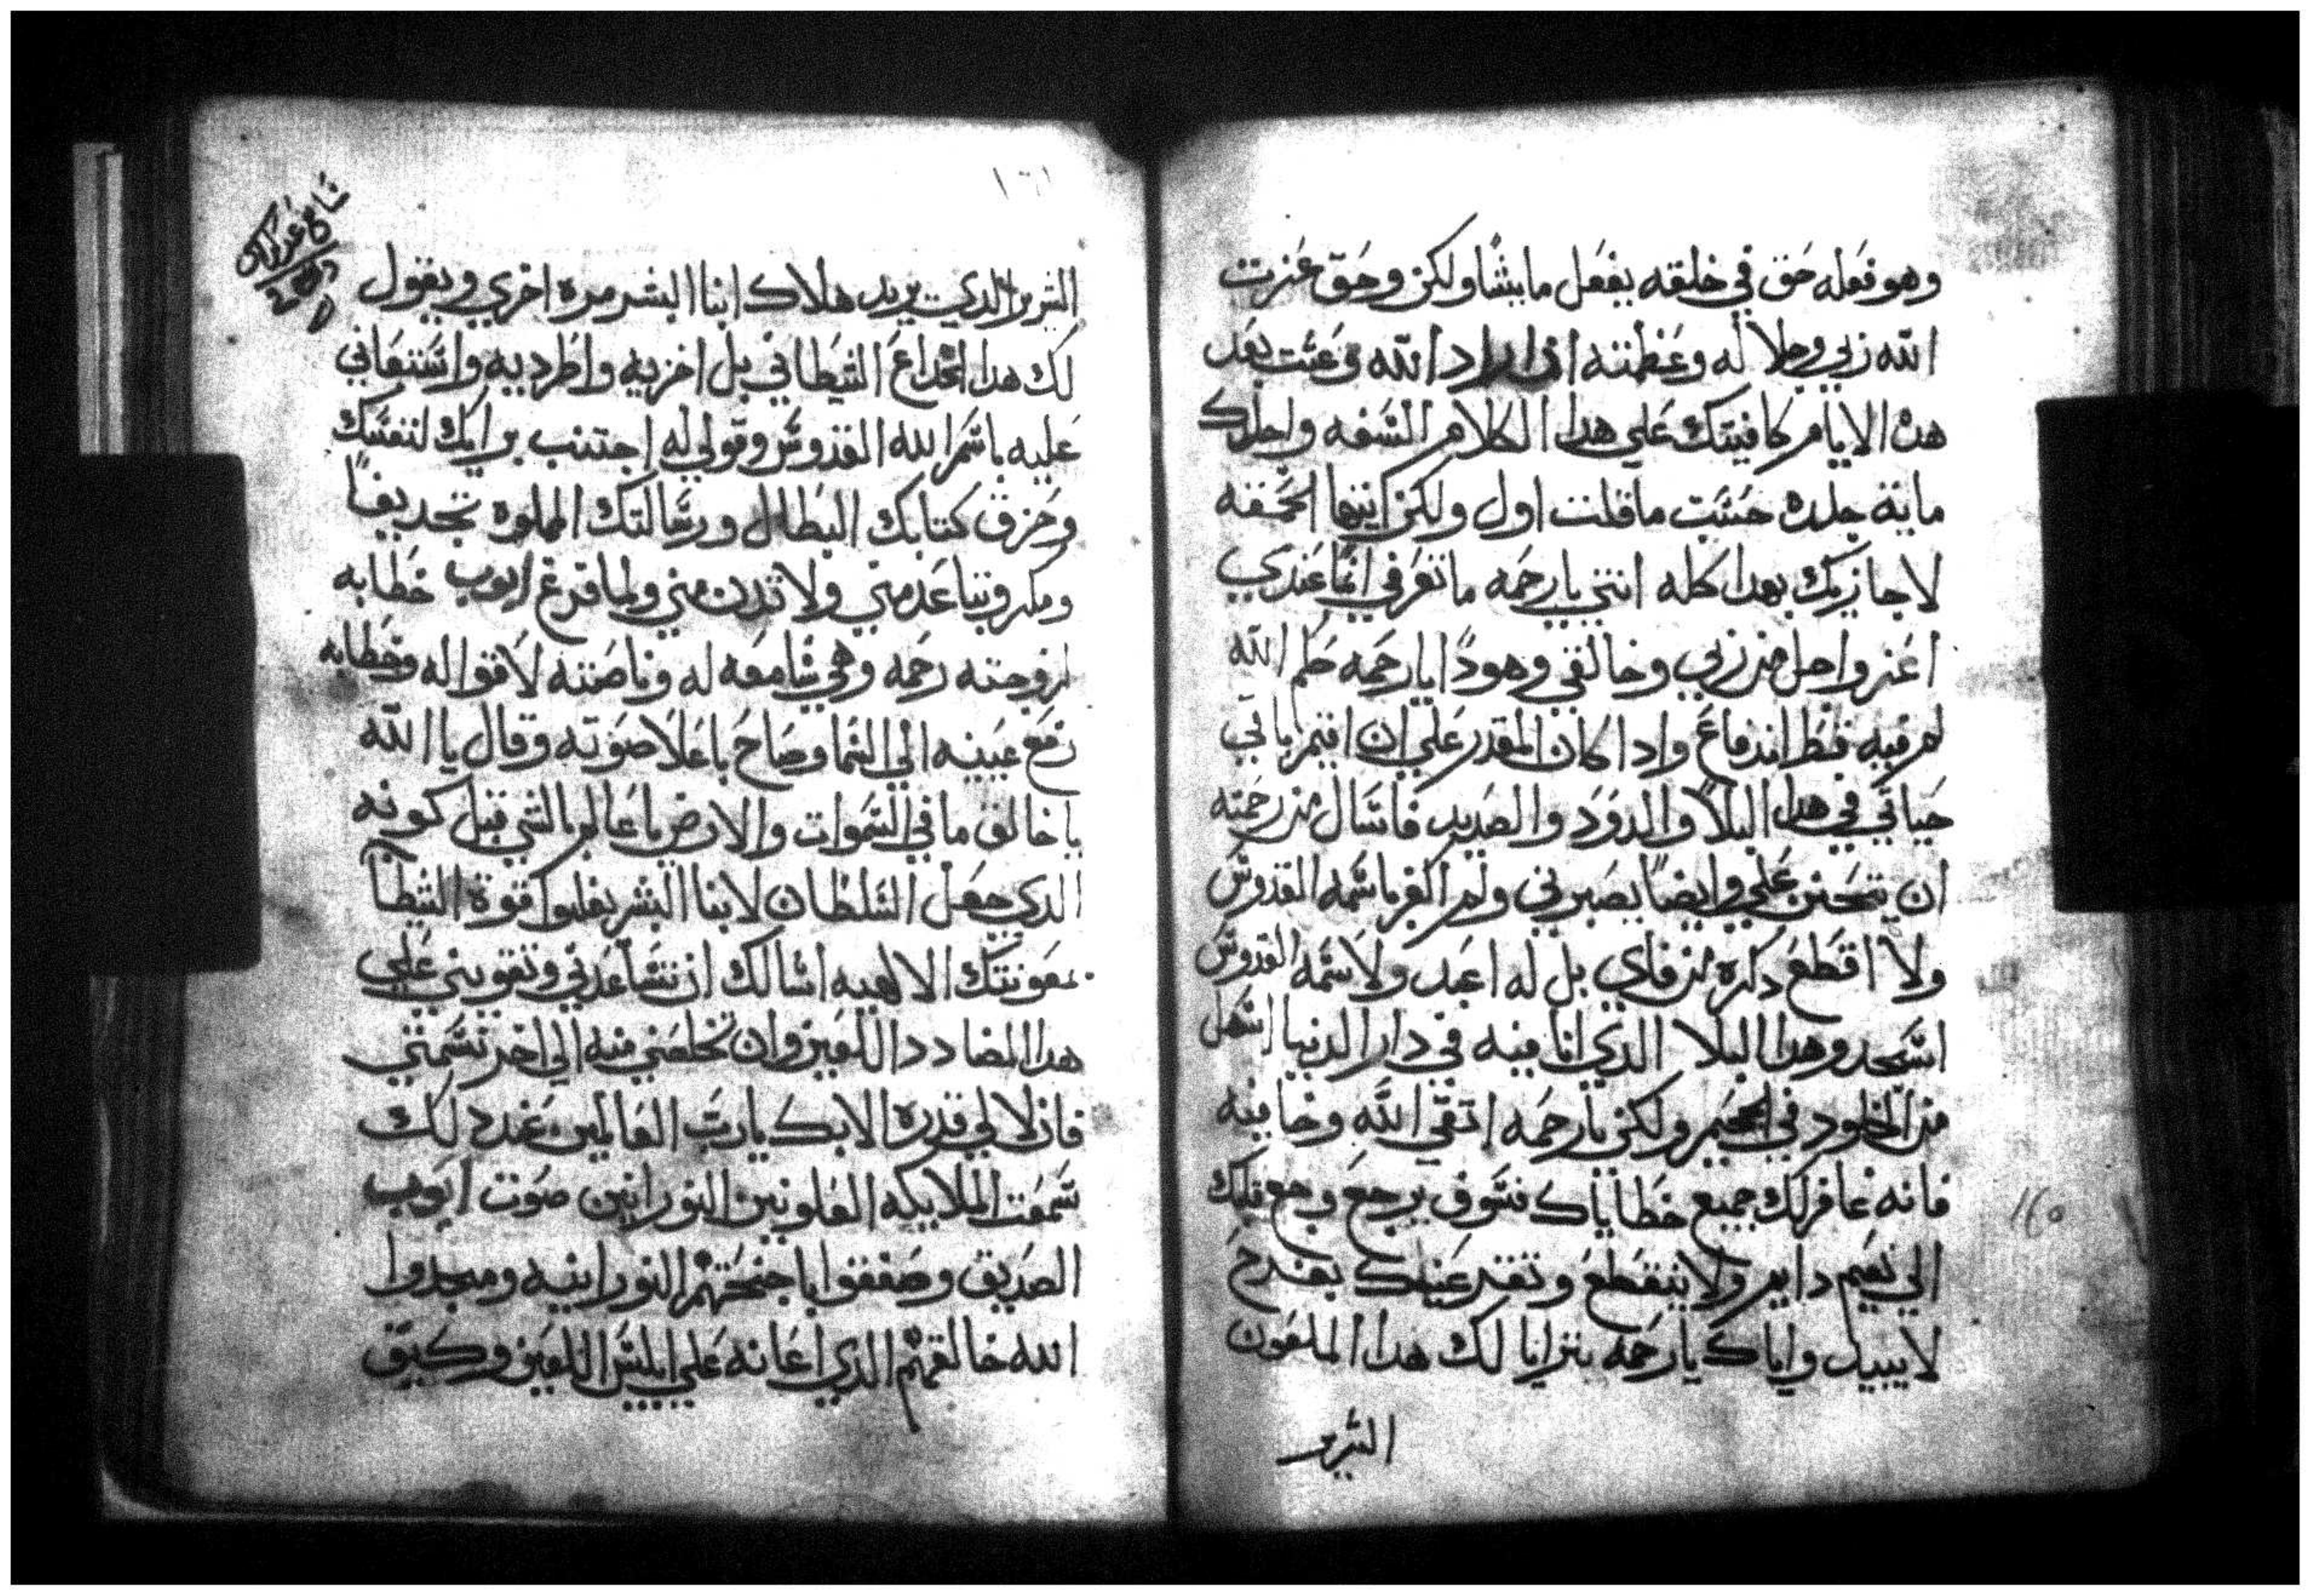 وهو فعله حق في خلقه يفعل ما يشا ولكن وحق عزت
الله ربي وجلاله وعظمته اذا اراد الله وعشت بعد
هده الايام كافيتك علي هدا الكلام السفه واجلدك
ماية جلده حسب ما قلت اول ولكن ايتها الحمقه
لاجازيك بهدا كله انتي يا رحمه ما تعرفي انما عندي
اعز واجل من ربي وخالقي وهودا يا رحمه حكم الله
لم فيه قط اندفاع وادا كان المقدر علي ان اقيم باقي
حياتي في هدا البلا والدود والصديد فاسال من رحمته
ان يتحنن علي وايضا يصبرني ولم اكفر باسمه القدوس
ولا اقطع دكره من فاي بل له اعبد ولاسمه القدوس
اسجد وهدا البلا الدي انا فيه في دار الدنيا اسهل
من الخلود في الجحيم ولكن يا رحمه اتقي الله وخافيه
فانه غافر لك جميع خطاياك فسوف يرجع وجع قلبك
الي نعيم دايم ولا ينقطع وتقر عينك بفرح
لا يبيد واياك يا رحمه يترايا لك هدا الملعون
الشرير
١٦٠
١٦١
الشرير الدي يريد هلاك ابنا البشر مره اخري ويقول
لك هدا الخداع الشيطاني بل اخزيه واطرديه واستعاني
عليه باسم الله القدوس وقولي له اجتنب برايك لنفسك
وحزق كتابك البطال ورسالتك المملوه تجديفا
ومكر وتباعد مني ولا تدن مني ولما فرغ ايوب خطابه
لزوجته رحمه وهي سامعه له وناصته لاقواله وخطابه
رفع عينيه الي السما وصاح باعلا صوته وقال يا الله
يا خالق ما في السموات والارض يا عالم بالشي قبل كونه
الدي جعل السلطان لابنا البشر يغلبوا قوة الشيطا
بمعونتك الالهيه اسالك ان تساعدني وتقويني علي
هدا المضادد اللعين وان تخلصني منه الي اخر نسمتي
فان لا لي قدره الا بك يا رب العالمين عند دلك
سمعت الملايكه العلويين النورانيين صوت ايوب
الصديق وصفقوا باجنحتهم النورانيه ومجدوا
الله خالقهم الدي اعانه علي ابليس اللعين وكيف